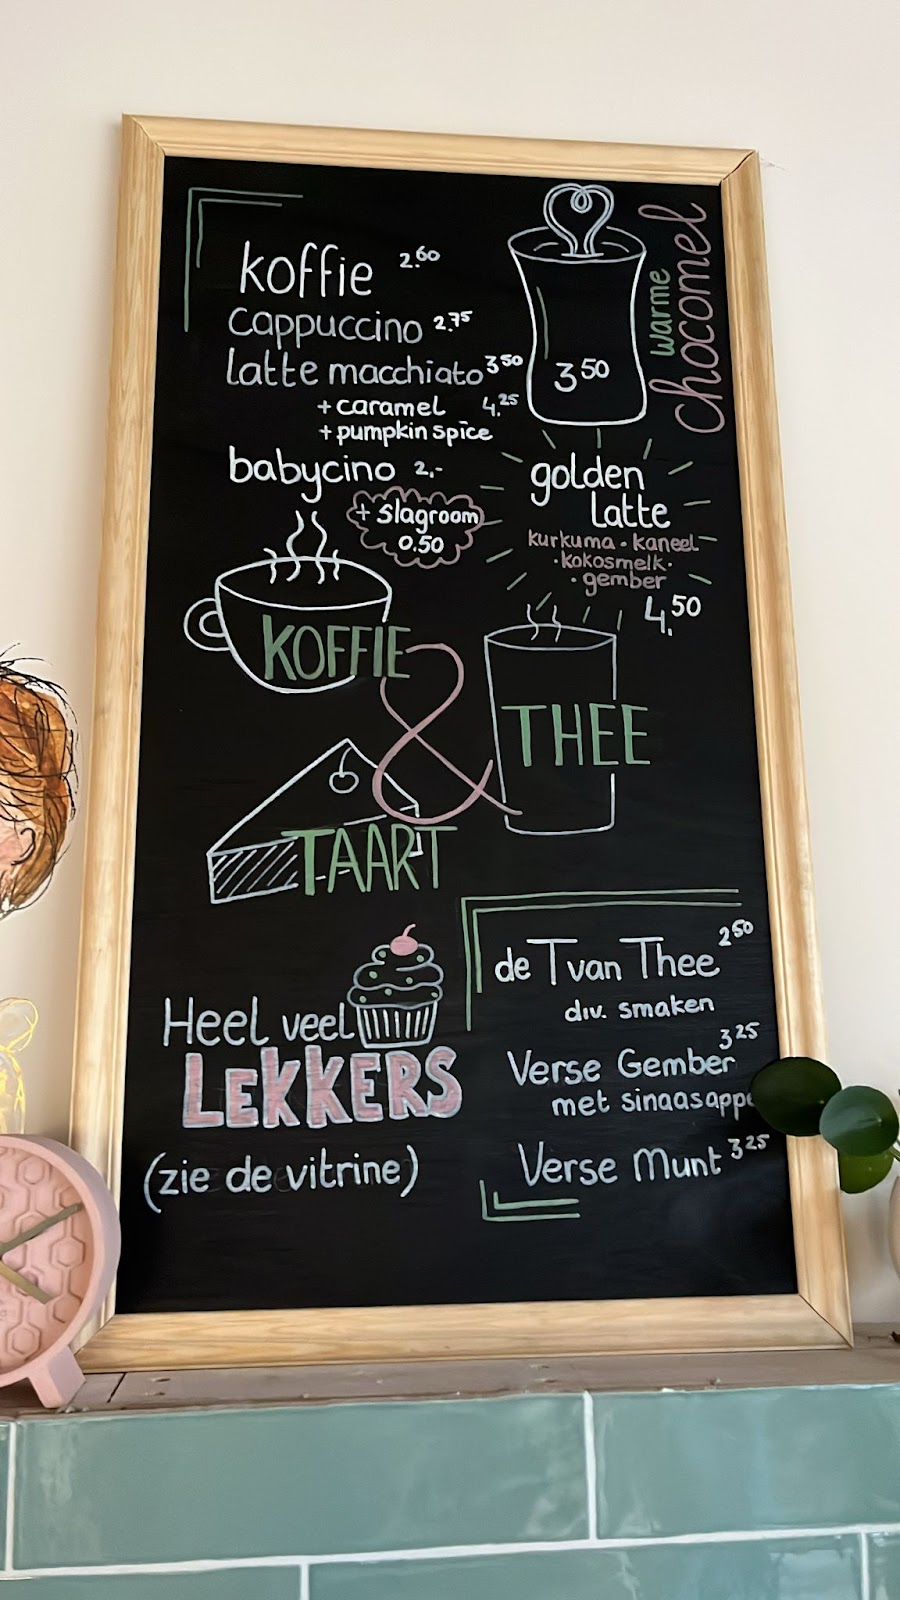 koffie 2.60
cappuccino 2.75
latte macchiato 3 50
+ caramel 4.25
+ pumpkin spice
babycino 2.-
+ slagroom
0.50
warme
chocomel
3 50
golden
latte
kurkuma • kaneel
• kokosmelk •
• gember
4.50
KOFFIE
&
THEE
TAART
Heel veel
LEKKERS
(zie de vitrine)
de T van Thee 2 50
div. smaken
Verse Gember 3 25
met sinaasappe
Verse Munt 3 25